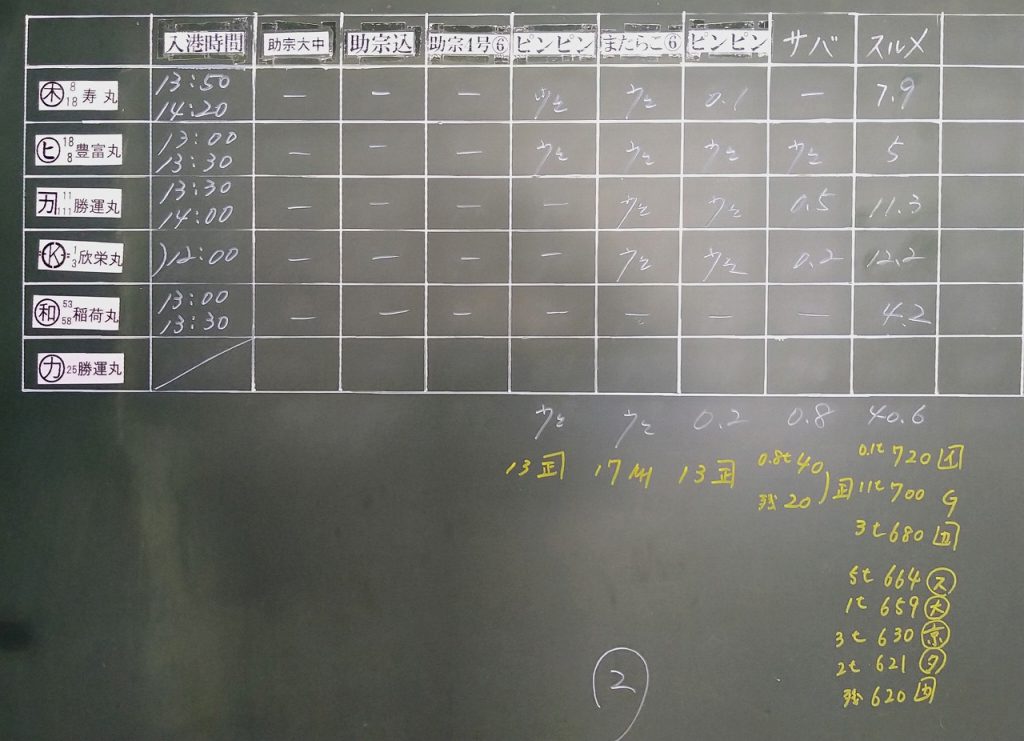 入港時間 助宗大中 助宗込 助宗4号⑥ ピンピン まだらこ⑥ ピンピン サバ スルメ
㊍ 8 18 寿丸 13:50 14:20 — — — 0.1 — 7.9
ヒ 18 8 豊富丸 13:00 13:30 — — — 5
カ 11 111 勝運丸 13:30 14:00 — — — — 0.5 11.3
K 1 3 欣栄丸 )12:00 — — — — 0.2 12.2
和 53 58 稲荷丸 13:00 13:30 — — — — — — — 4.2
カ 25 勝運丸
0.2 0.8 40.6
13 正 17 13 正 0.8t 40 0.1t 720
残 20 正 11t 700
3t 680
5t 664 ス
1t 659 大
3t 630 京
2t 621 タ
残 620
2